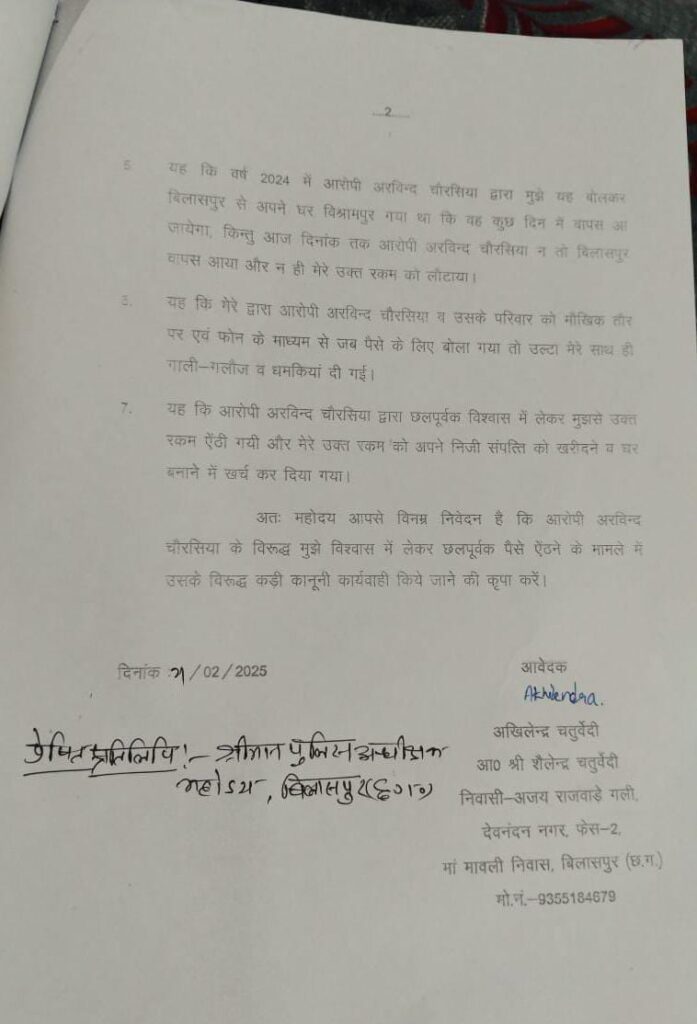 ....2.....
5. यह कि वर्ष 2024 में आरोपी अरविन्द चौरसिया द्वारा मुझे यह बोलकर
बिलासपुर से अपने घर विश्रामपुर गया था कि वह कुछ दिन में वापस आ
जायेगा, किन्तु आज दिनांक तक आरोपी अरविन्द चौरसिया न तो बिलासपुर
वापस आया और न ही मेरे उक्त रकम को लौटाया।
यह कि मेरे द्वारा आरोपी अरविन्द चौरसिया व उसके परिवार को मौखिक तौर
पर एवं फोन के माध्यम से जब पैसे के लिए बोला गया तो उल्टा मेरे साथ ही
गाली–गलौज व धमकियां दी गई।
7. यह कि आरोपी अरविन्द चौरसिया द्वारा छलपूर्वक विश्वास में लेकर मुझसे उक्त
रकम ऐंठी गयी और मेरे उक्त रकम को अपने निजी संपत्ति को खरीदने व घर
बनाने में खर्च कर दिया गया।
अतः महोदय आपसे विनम्र निवेदन है कि आरोपी अरविन्द
चौरसिया के विरूद्ध मुझे विश्वास में लेकर छलपूर्वक पैसे ऐंठने के मामले में
उसके विरूद्ध कड़ी कानूनी कार्यवाही किये जाने की कृपा करें।
दिनांक /02/2025
आवेदक
Akhilendra.
अखिलेन्द्र चतुर्वेदी
आ0 श्री शैलेन्द्र चतुर्वेदी
निवासी–अजय राजवाड़े गली,
देवनंदन नगर, फेस–2,
मां मावली निवास, बिलासपुर (छ.ग.)
मो.नं.–9355184679
प्रेषित प्रतिलिपि!– श्रीमान पुलिस अधीक्षक
महोदय, बिलासपुर (छ०ग०)